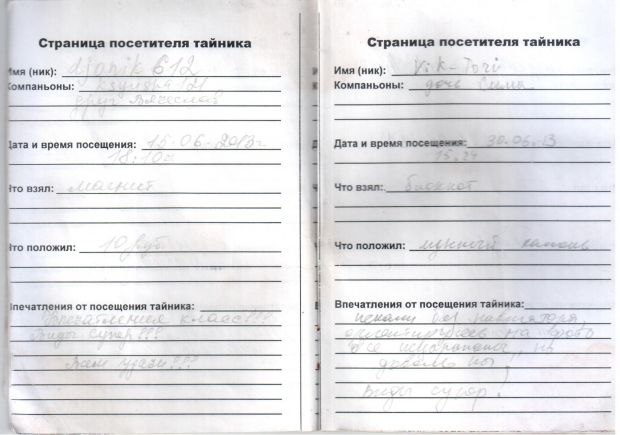 Страница посетителя тайника
Имя (ник): Djonik 612
Компаньоны:
друг Вячеслав
Дата и время посещения: 15.06.2013г
18:10
Что взял: магнит
Что положил: 10 руб
Впечатления от посещения тайника:
Впечатления класс!!!
Виды супер!!!
Всем удачи!!!
Страница посетителя тайника
Имя (ник): Vik-Tori
Компаньоны: дочь Сима
Дата и время посещения: 30.06.13
15.24
Что взял: блокнот
Что положил: лунный камень
Впечатления от посещения тайника:
искали без навигатора,
ориентируясь на
все исцарапаны, но
довольны,
Виды супер.